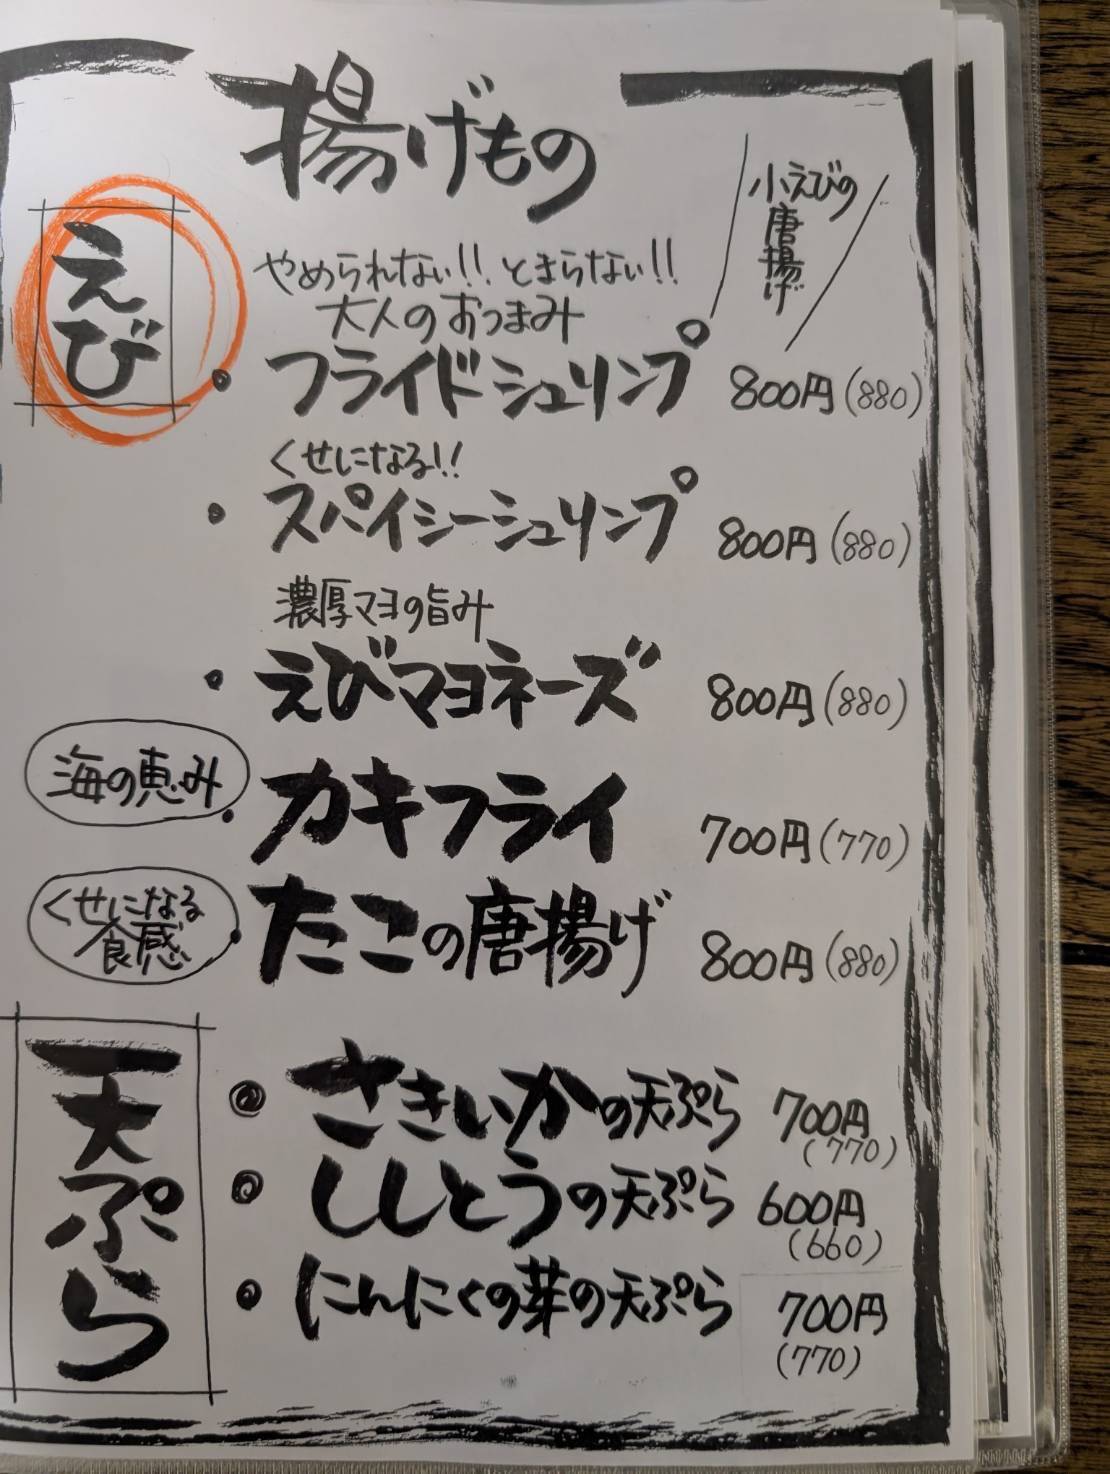 揚げもの
小えびの
唐揚げ
えび
やめられない!! とまらない!!
大人のおつまみ
・フライドシュリンプ 800円(880)
くせになる!!
・スパイシーシュリンプ 800円(880)
濃厚マヨの旨み
・えびマヨネーズ 800円(880)
海の恵み
・カキフライ 700円(770)
くせになる
食感
・たこの唐揚げ 800円(880)
天ぷら
・さきいかの天ぷら 700円
(770)
・ししとうの天ぷら 600円
(660)
・にんにくの芽の天ぷら 700円
(770)